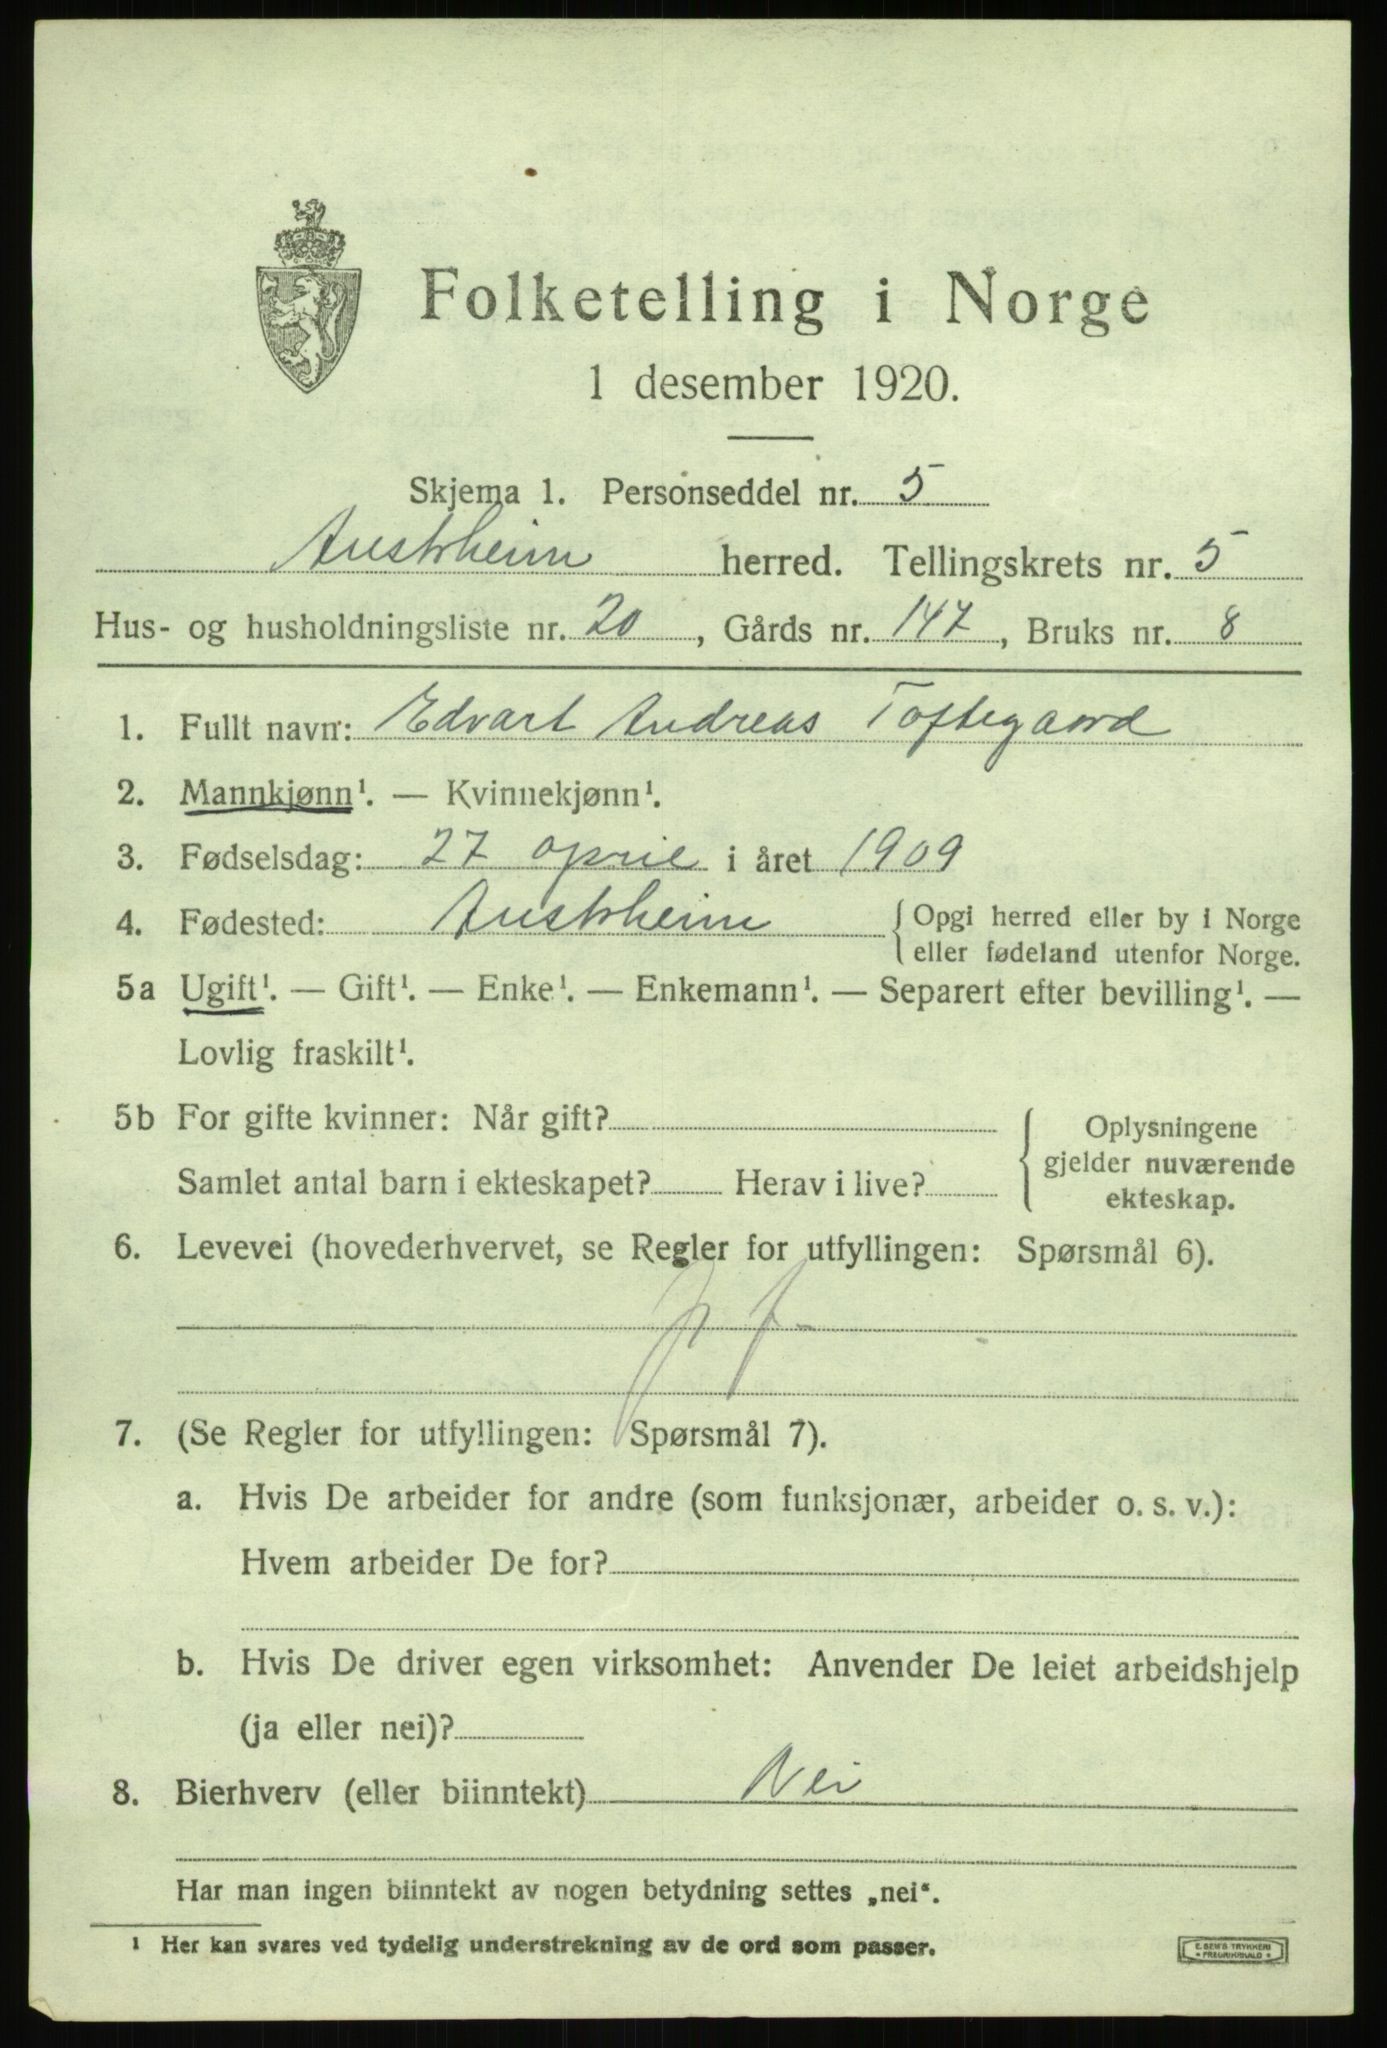 Folketelling i Norge
1 desember 1920.
Skjema 1. Personseddel nr. 5
Austrheim herred. Tellingskrets nr. 5
Hus- og husholdningsliste nr. 20, Gårds nr. 147, Bruks nr. 8
1. Fullt navn: Edvart Andreas Toftegaard
2. Mannkjønn¹. — Kvinnekjønn¹.
3. Fødselsdag: 27 april i året 1909
4. Fødested: Austrheim { Opgi herred eller by i Norge
eller fødeland utenfor Norge.
5a Ugift¹. — Gift¹. — Enke¹. — Enkemann¹. — Separert efter bevilling¹. —
Lovlig fraskilt¹.
5b For gifte kvinner: Når gift?
Samlet antal barn i ekteskapet? Herav i live?
{ Oplysningene
gjelder nuværende
ekteskap.
6. Levevei (hovederhvervet, se Regler for utfyllingen: Spørsmål 6).
7. (Se Regler for utfyllingen: Spørsmål 7).
a. Hvis De arbeider for andre (som funksjonær, arbeider o. s. v.):
Hvem arbeider De for?
b. Hvis De driver egen virksomhet: Anvender De leiet arbeidshjelp
(ja eller nei)?
8. Bierhverv (eller biinntekt) Nei
Har man ingen biinntekt av nogen betydning settes „nei“.
¹ Her kan svares ved tydelig understrekning av de ord som passer.
E. SEM'S TRYKKERI
FREDRIKSHALD